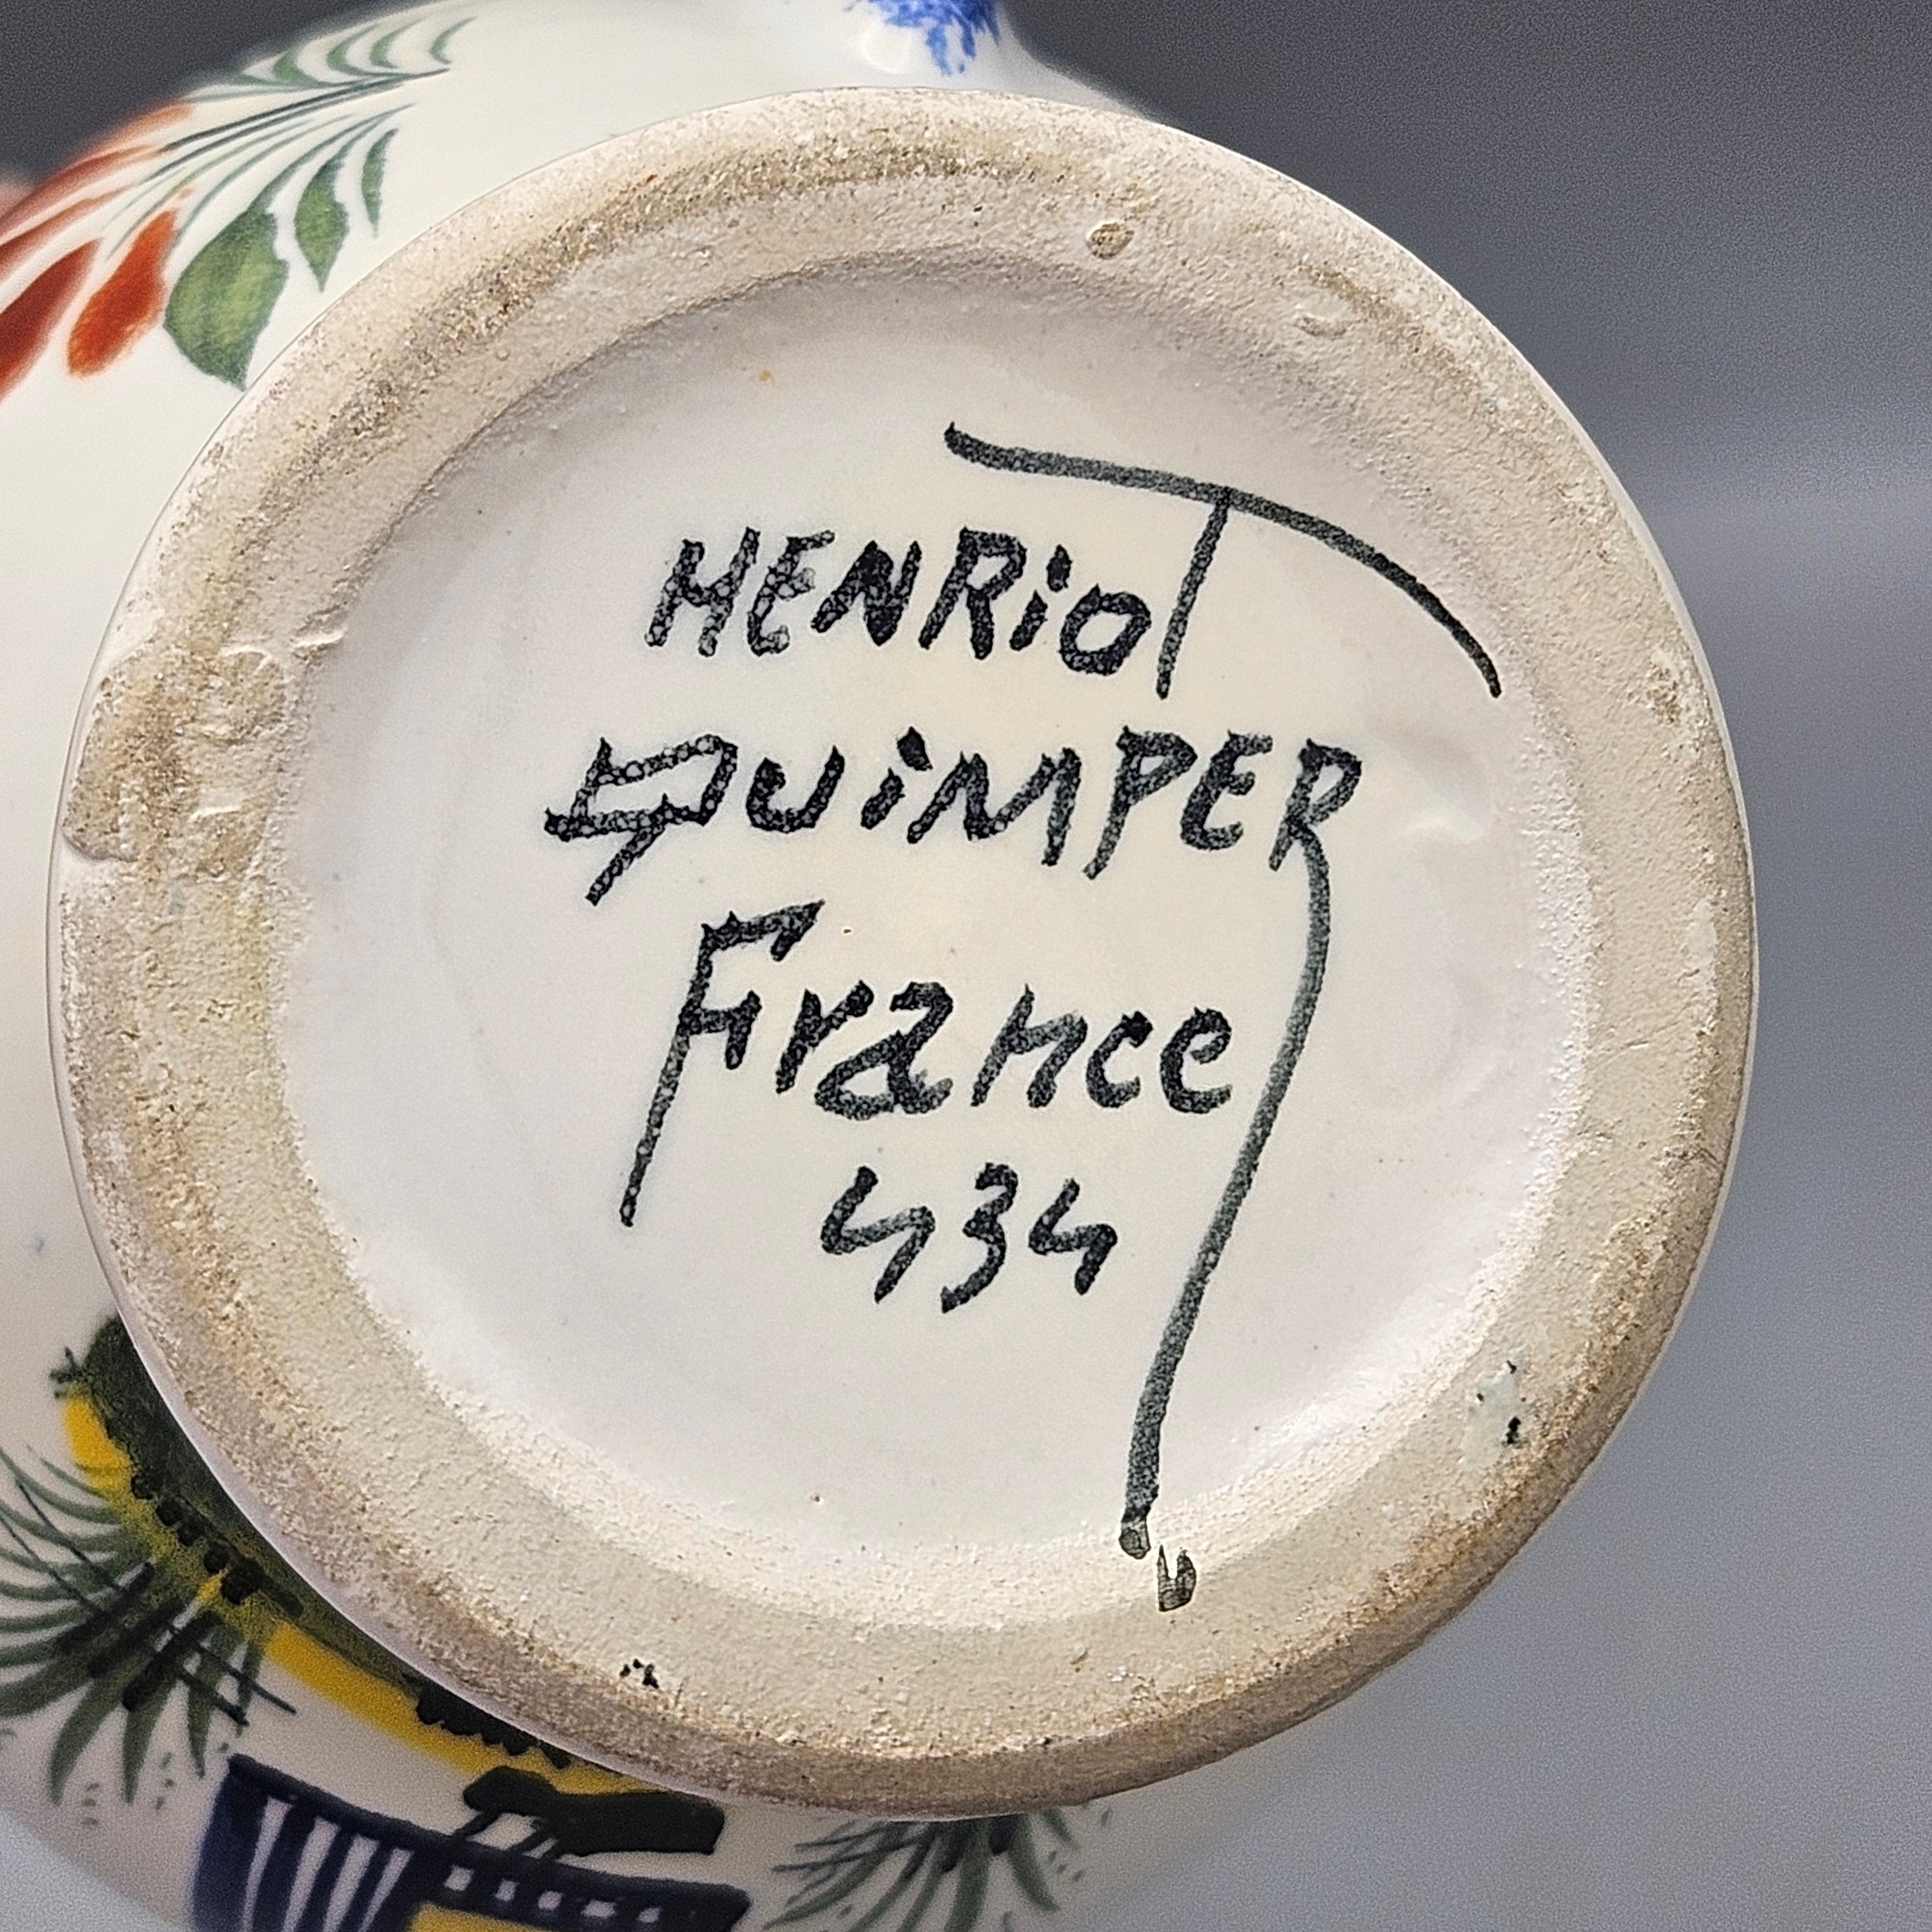 HENRiOT
QUiMPER
France
434